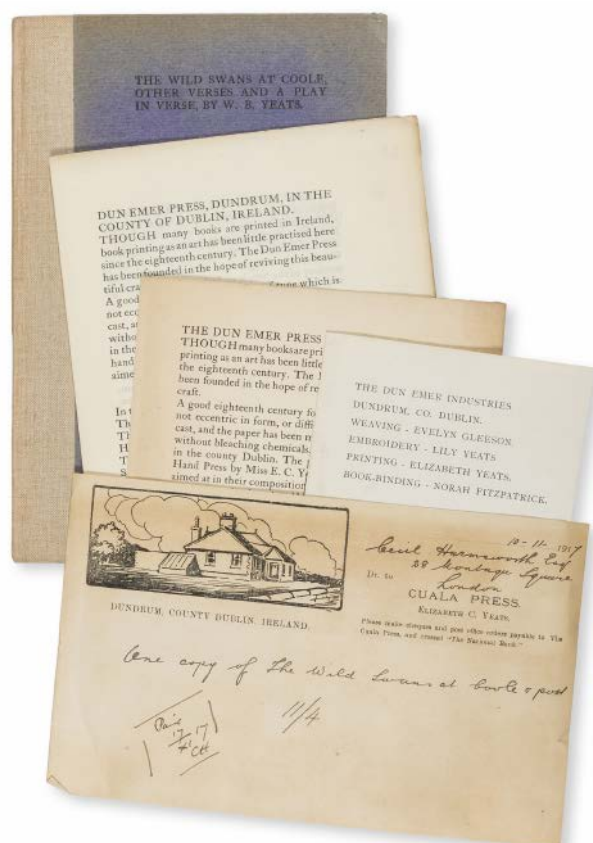 THE WILD SWANS AT COOLE,
OTHER VERSES AND A PLAY
IN VERSE, BY W. B. YEATS.
DUN EMER PRESS, DUNDRUM, IN THE
COUNTY OF DUBLIN, IRELAND.
THOUGH many books are printed in Ireland,
book printing as an art has been little practised here
since the eighteenth century. The Dun Emer Press
has been founded in the hope of reviving this beau-
tiful cra
which is
A good
not ecc
cast, a
witho
in the
hand
aime
In t
Th
Th
H
T
S
THE DUN EMER PRESS
THOUGH many books are pri
printing as an art has been little
the eighteenth century. The
been founded in the hope of re
craft.
A good eighteenth century fo
not eccentric in form, or diffi
cast, and the paper has been m
without bleaching chemicals,
in the county Dublin. The
Hand Press by Miss E. C. Y
aimed at in their composition
THE DUN EMER INDUSTRIES
DUNDRUM, CO. DUBLIN.
WEAVING - EVELYN GLEESON
EMBROIDERY - LILY YEATS
PRINTING - ELIZABETH YEATS.
BOOK-BINDING - NORAH FITZPATRICK.
10-11-1917
Cecil Harmsworth Esq
28 Montagu Square
London
Dr. to
CUALA PRESS.
ELIZABETH C. YEATS.
Please make cheques and post office orders payable to The
Cuala Press, and crossed "The National Bank."
DUNDRUM, COUNTY DUBLIN, IRELAND.
One copy of The Wild Swans at Coole & post
11/4
Paid
17